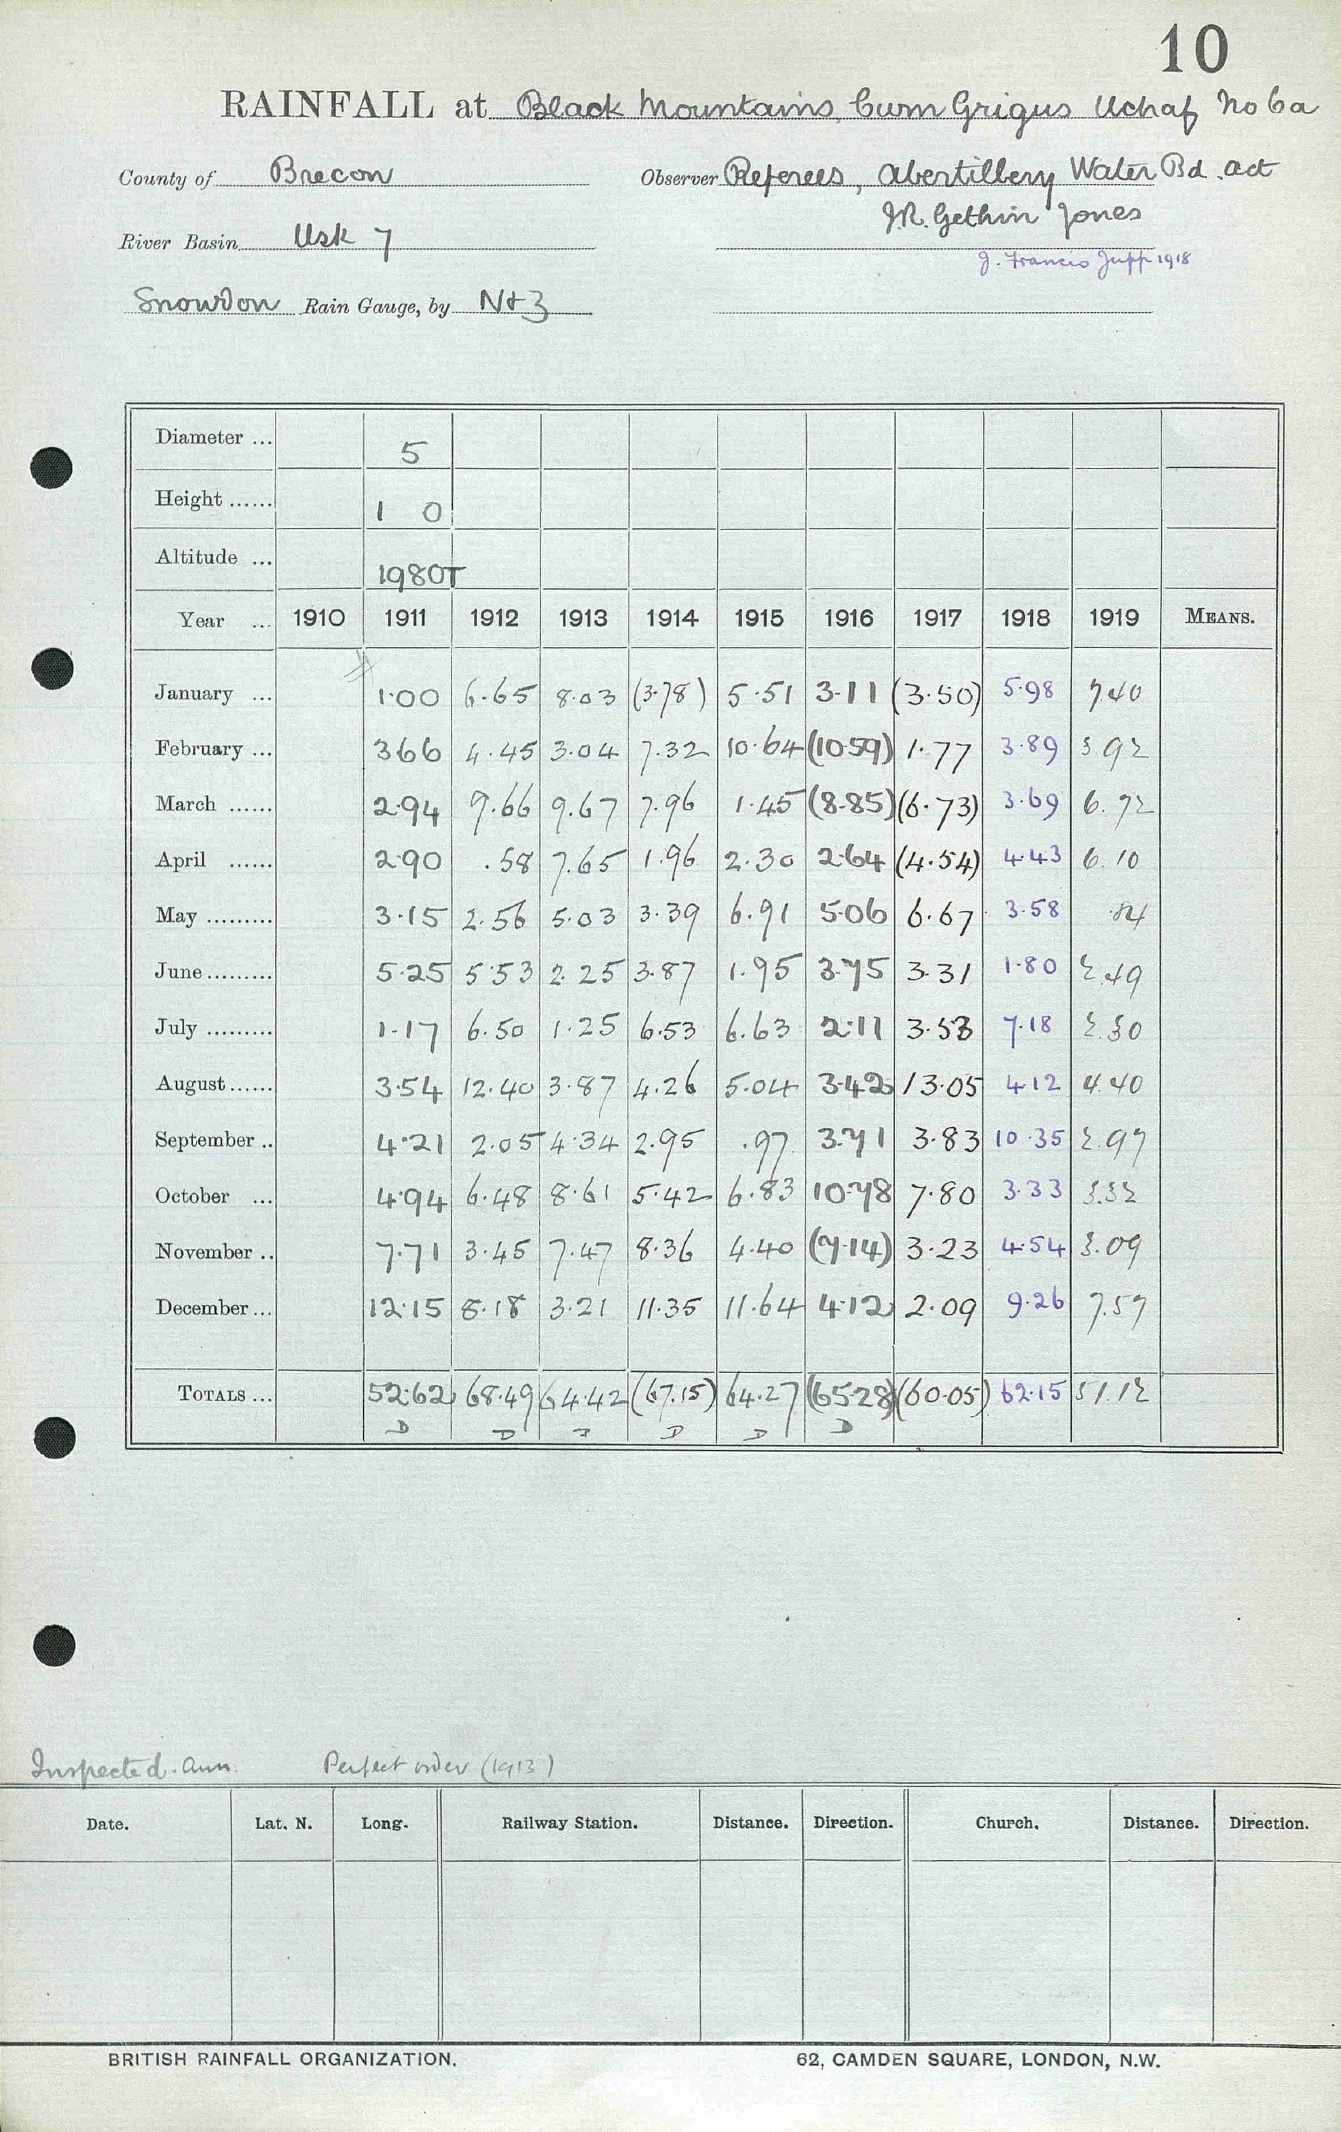 10
RAINFALL at Black Mountains, Cwm Grigus Uchaf No 6a
County of Brecon Observer Referees, Abertillery Water Bd. Act
J.R. Gethin Jones
River Basin Usk 7
J. Francis Jupp 1918
Snowdon Rain Gauge, by N+3
Diameter ... 5
Height ...... 1 0
Altitude ... 1980T
Year ... 1910 1911 1912 1913 1914 1915 1916 1917 1918 1919 MEANS.
January ... 1.00 6.65 8.03 (3.78) 5.51 3.11 (3.50) 5.98 7.40
February ... 3.66 4.45 3.04 7.32 10.64 (10.59) 1.77 3.89 3.92
March ...... 2.94 9.66 9.67 7.96 1.45 (8.85) (6.73) 3.69 6.72
April ...... 2.90 .58 7.65 1.96 2.30 2.64 (4.54) 4.43 6.10
May ......... 3.15 2.56 5.03 3.39 6.91 5.06 6.67 3.58 .84
June ......... 5.25 5.53 2.25 3.87 1.95 3.75 3.31 1.80 2.49
July ......... 1.17 6.50 1.25 6.53 6.63 2.11 3.53 7.18 2.30
August ...... 3.54 12.40 3.87 4.26 5.04 3.42 13.05 4.12 4.40
September .. 4.21 2.05 4.34 2.95 .97 3.71 3.83 10.35 2.97
October ... 4.94 6.48 8.61 5.42 6.83 10.78 7.80 3.33 3.32
November .. 7.71 3.45 7.47 8.36 4.40 (7.14) 3.23 4.54 3.09
December ... 12.15 8.18 3.21 11.35 11.64 4.12 2.09 9.26 7.57
TOTALS ... 52.62 68.49 64.42 (67.15) 64.27 (65.28) (60.05) 62.15 51.12
D D D D D D
Inspected. Ann. Perfect order (1913)
Date. Lat. N. Long. Railway Station. Distance. Direction. Church. Distance. Direction.
BRITISH RAINFALL ORGANIZATION. 62, CAMDEN SQUARE, LONDON, N.W.